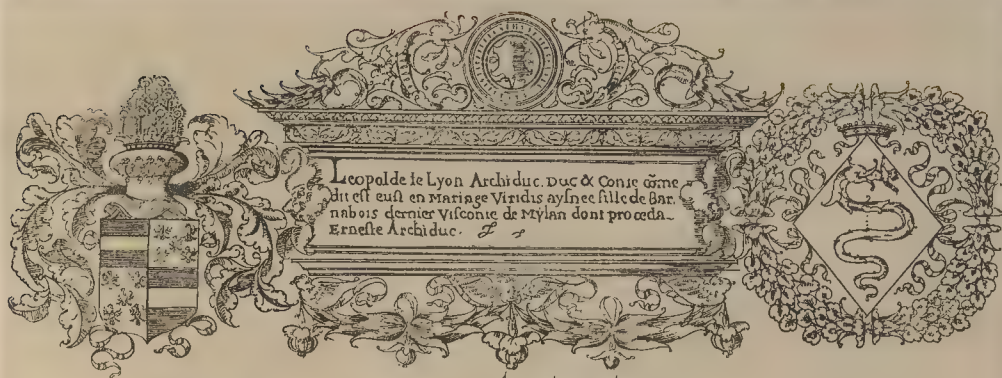 Leopolde le Lyon Archiduc. Duc & Conte cõme
dit est eust en Mariage Viridis aysnee fille de Bar,
nabois dernier Visconte de Mylan dont proceda
Erneste Archiduc.